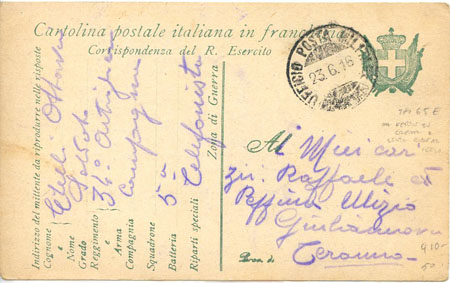 Cartolina postale italiana in franchigia
Corrispondenza del R. Esercito
UFFICIO POSTA MILITARE
23.6.16
Indirizzo del mittente da riprodurre nelle risposte
Cognome
e
Nome
Grado
Reggimento
e
Arma
Compagnia
Squadrone
Batteria
Riparti speciali
Zona di Guerra
Soldato
34° Artiglieria
Campagna
5a
Telefonista
Ai Miei cari
zii Raffaele e
Peppina
Giulianova
Prov. di Teramo